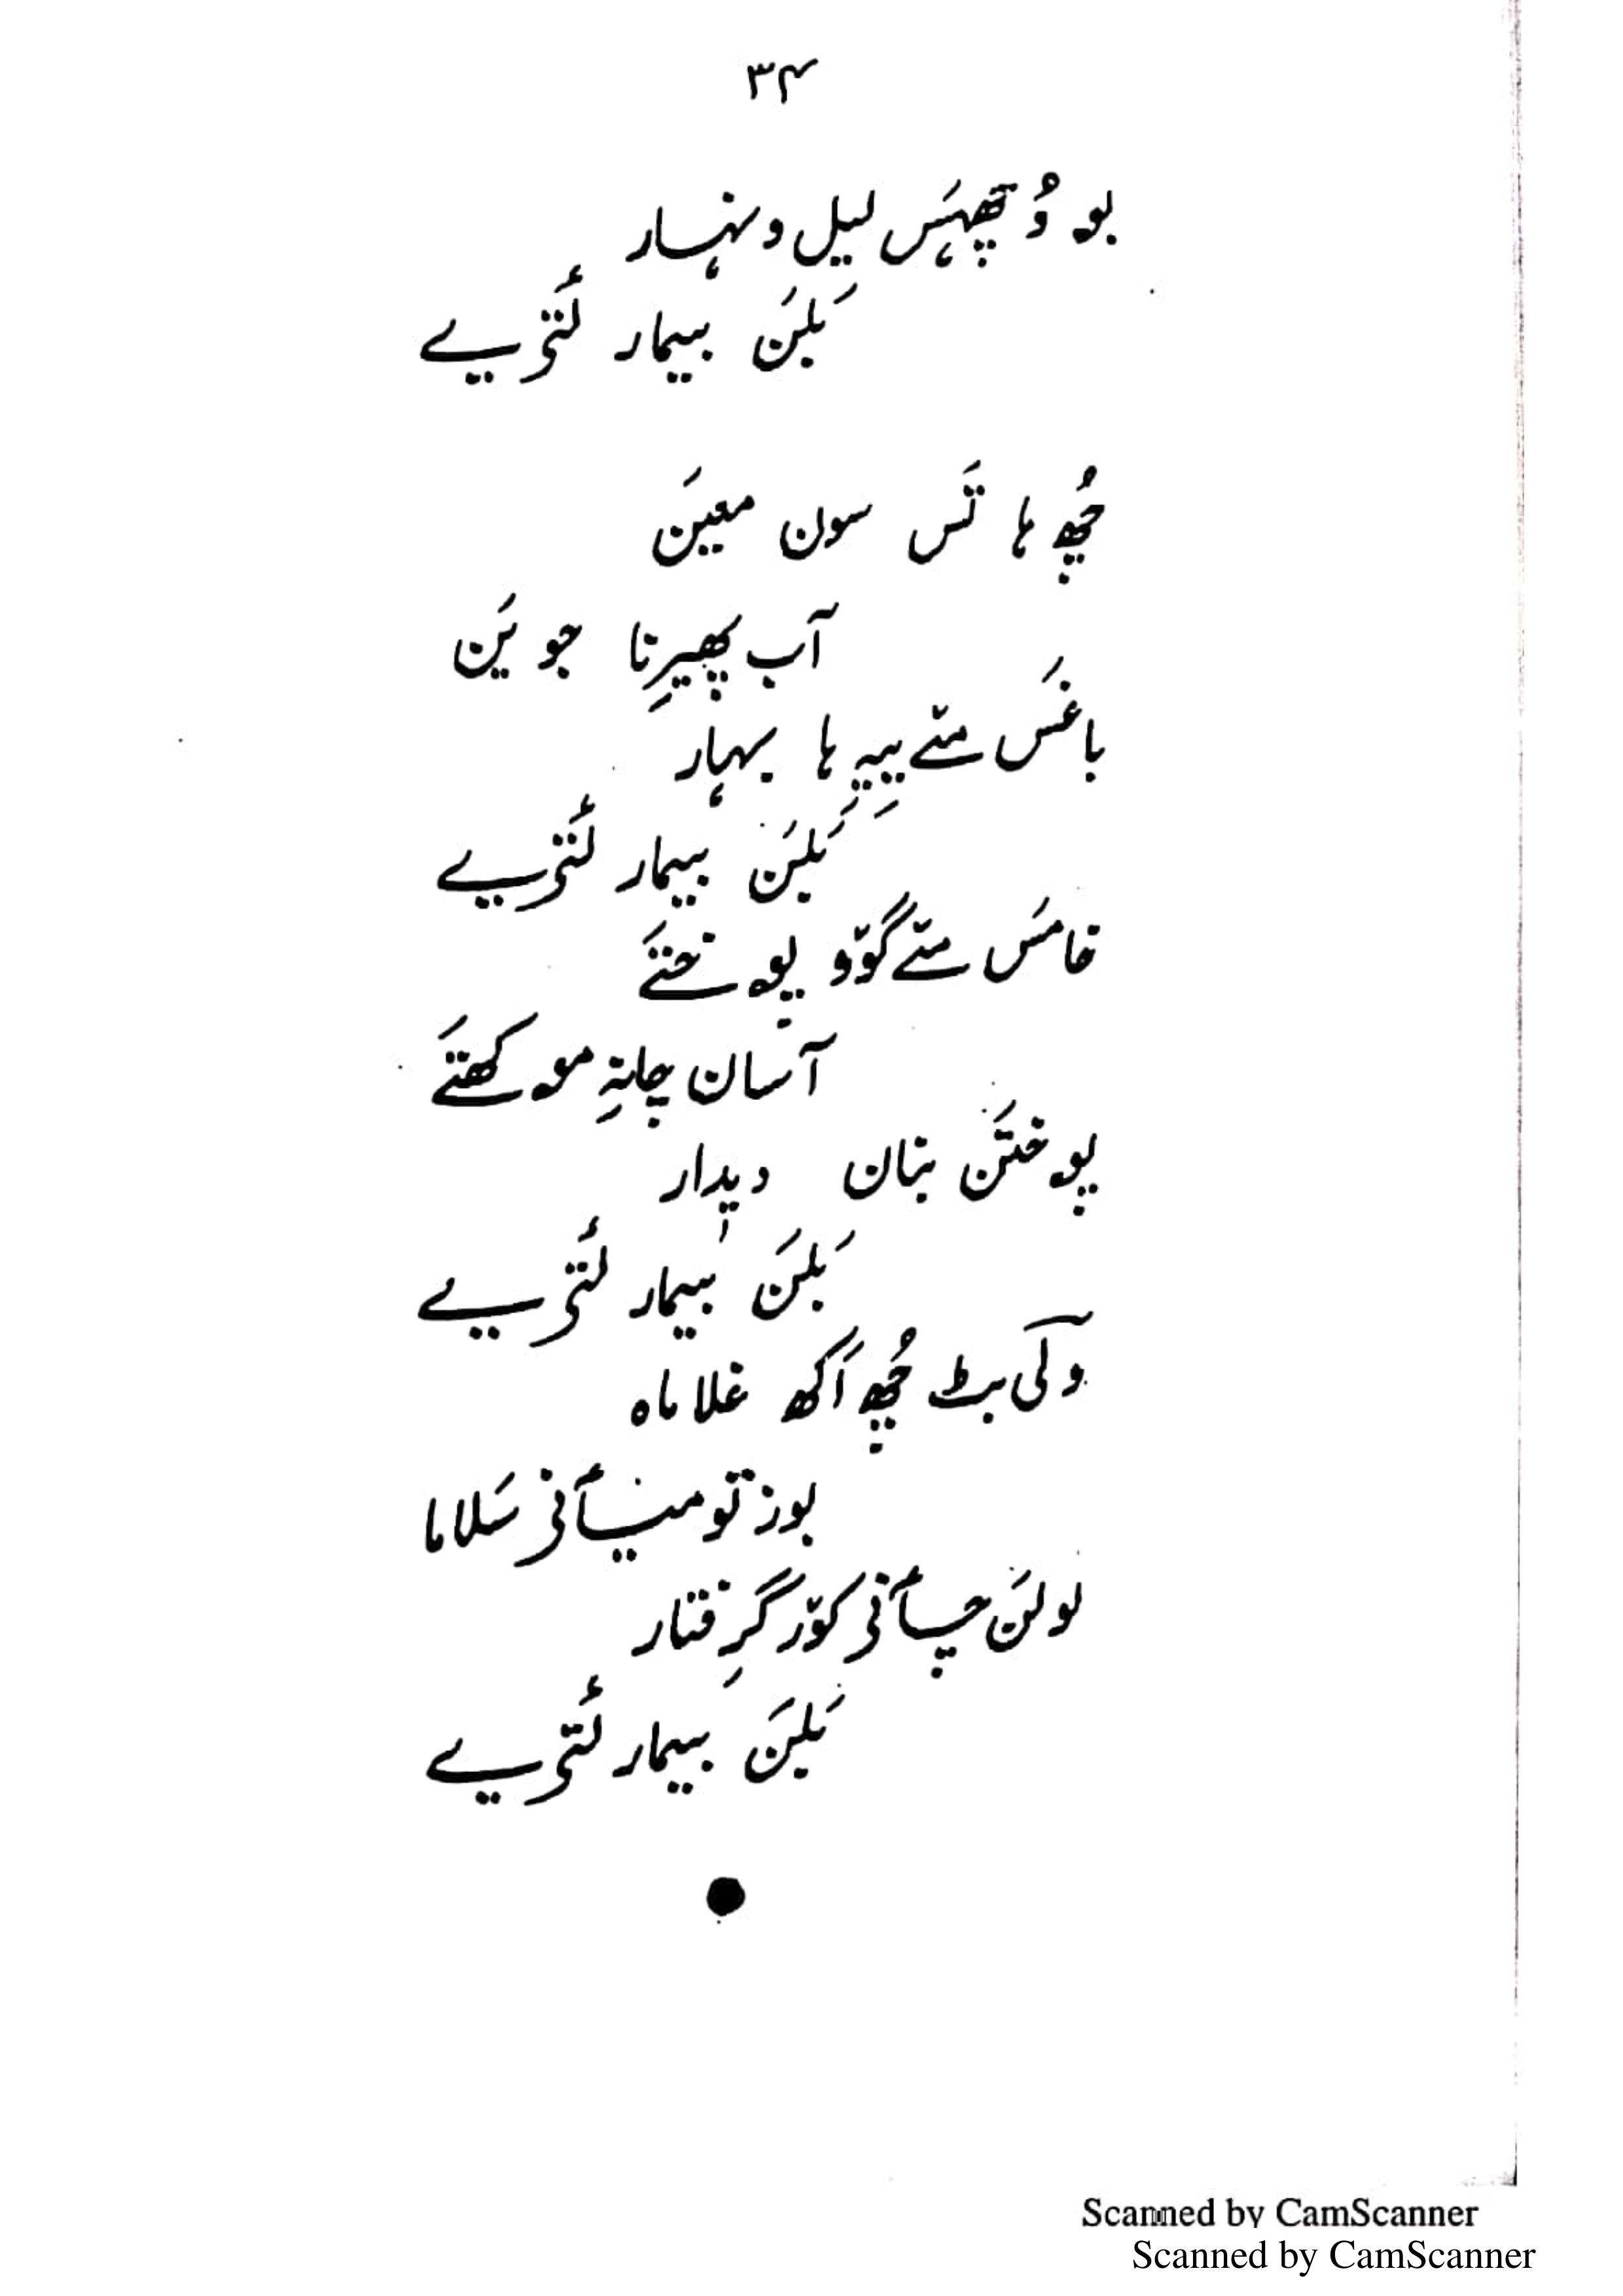 ۳۴
بو دُ تھہسَ لیلِ ونہار
بَلنَ بیمار لَتۍیے
چُھ ہا تَس سون معینَ
آب پھیرِنا جو ینَ
باغسَ متے ییہِ ہا بہار
بَلنَ بیمار لَتۍیے
خامسَ متے گوٚو پوختےَ
آسان چانہِ مو کھتےَ
پو ختنَ بنان دیٖدار
بَلنَ بیمار لَتۍیے
وٓلی بٹ چُھ اَکھ غلاماہ
بوز تو میأنۍ سَلاما
لو لنَ چأنۍ کوٚر گرِفتار
بَلنَ بیمار لَتۍیے
Scanned by CamScanner
Scanned by CamScanner